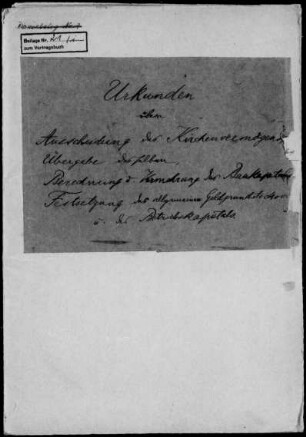 Beilage Nr.
zum Vortragsbuch
Urkunden
über
Ausscheidung des Kirchenvermögens
Übergabe desselben
Berechnung & des Baukapitals
Festsetzung des allgemeinen
& des Betriebskapitals